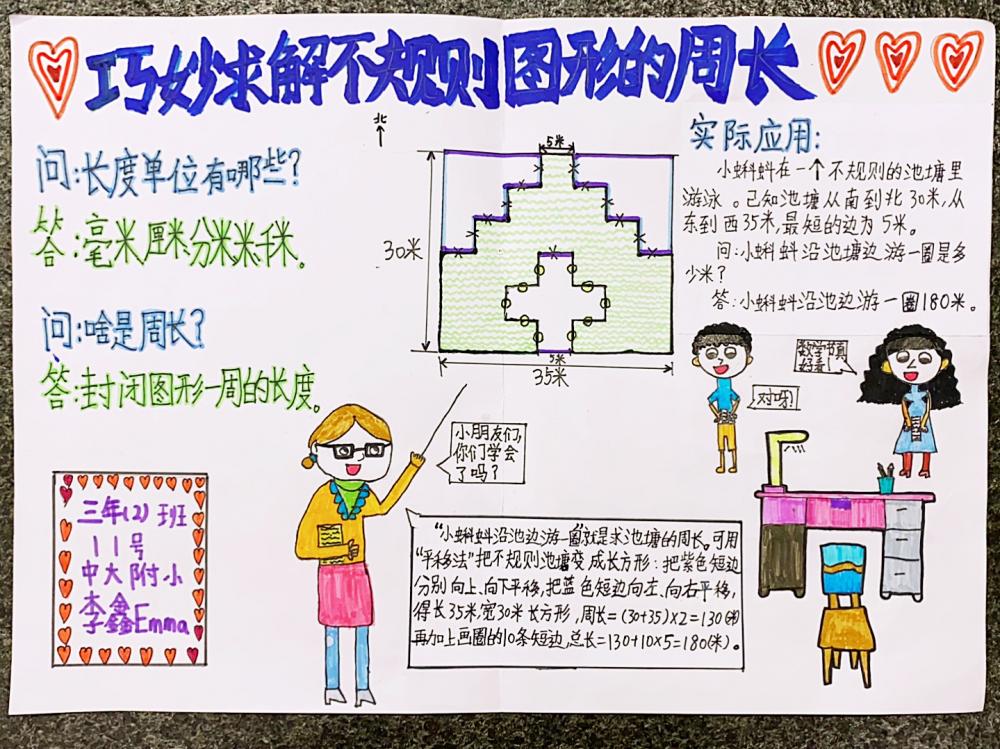 巧妙求解不规则图形的周长
问:长度单位有哪些?
答:毫米厘米分米米千米。
问:啥是周长?
答:封闭图形一周的长度。
北
5米
30米
5米
35米
实际应用:
小蝌蚪在一个不规则的池塘里
游泳。已知池塘从南到北30米,从
东到西35米,最短的边为5米。
问:小蝌蚪沿池塘边游一圈是多
少米?
答:小蝌蚪沿池边游一圈180米。
数学节真
好看!
对呀!
小朋友们,
你们学会
了吗?
三年(2)班
11号
中大附小
李鑫Emma
“小蝌蚪沿池边游一圈”就是求池塘的周长。可用
“平移法”把不规则池塘变成长方形:把紫色短边
分别向上、向下平移,把蓝色短边向左、向右平移,
得长35米,宽30米长方形,周长=(30+35)×2=130(米)
再加上画圈的10条短边,总长=130+10×5=180(米)。